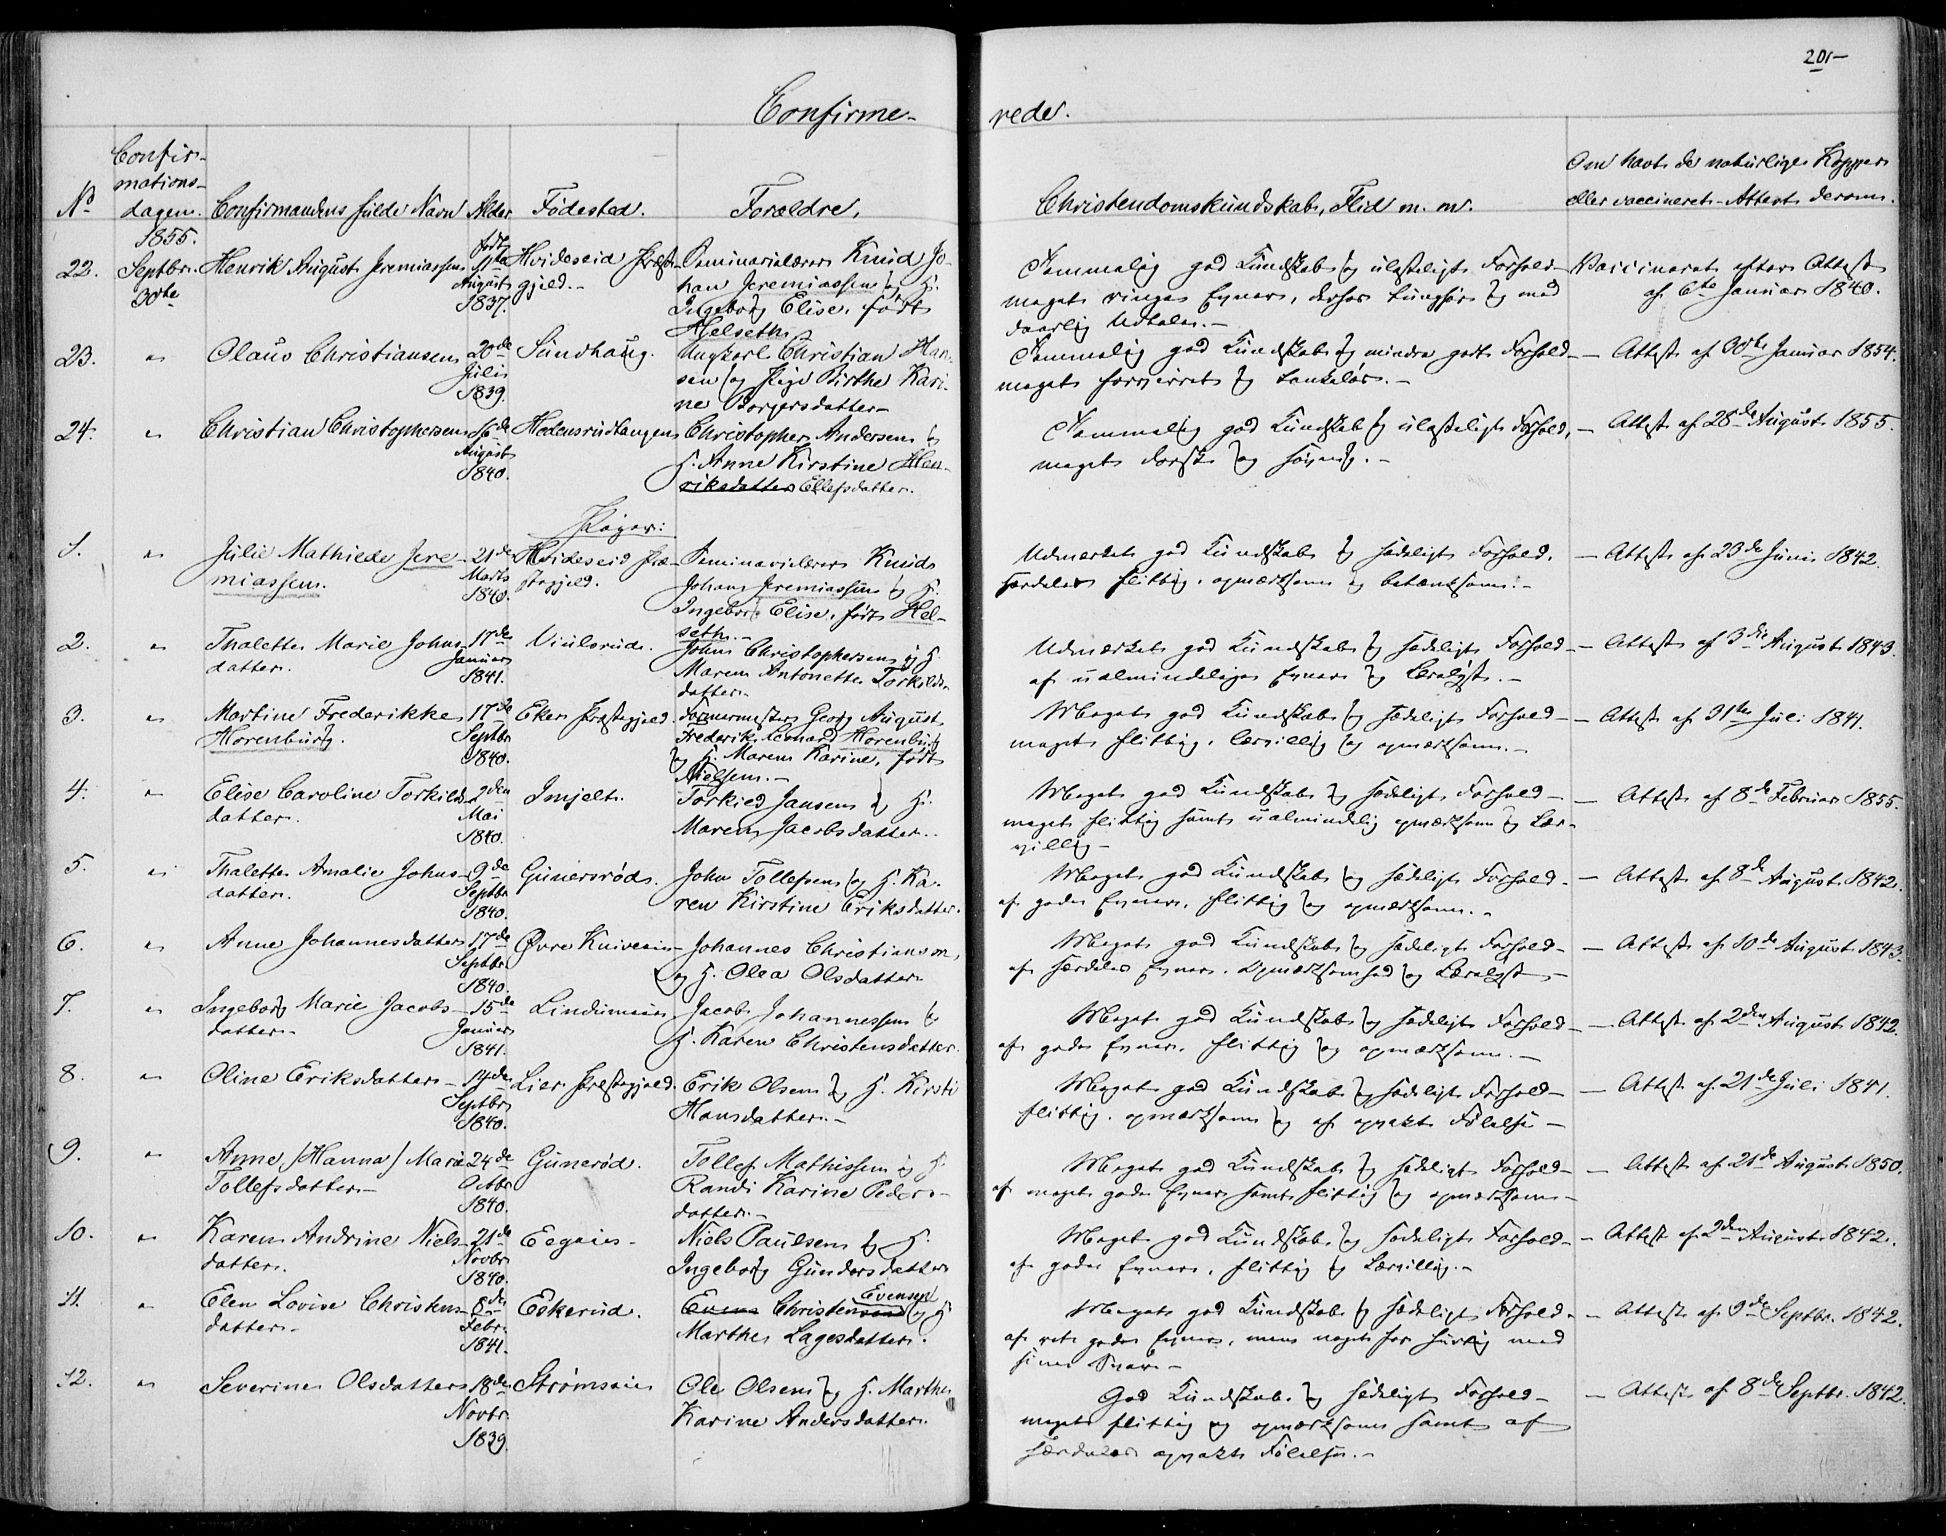 201-
Confirme-
rede.
No
Confir-
mations-
dagen.
Confirmandens fulde Navn
Alder
Fødested.
Forældre.
Christendomskundskab, Flid m. m.
Om havt de naturlige Kopper
eller vaccineret - Attest derom.
1855.
22.
Septbr.
30te
Henrik August Jeremiassen
født
11te
August
1837.
Hvideseid Præste-
gjeld.-
Seminarielærer Knud Jo-
han Jeremiassen og H.
Ingeborg Elise, født
Helseth.
Temmelig god Kundskab og ulasteligt Forhold-
meget ringe Evner, derfor tunghør og med
daarlig Udtale.-
Vaccineret efter Attest
af 6te Januar 1840.
23.
"
Olaus Christiansen
20de
Juli
1839.
Sundhaug.
Ungkarl Christian Han-
sen og Pige Birthe Kari-
ne Borgersdatter-
Temmelig god Kundskab og mindre godt Forhold-
meget forvirret og tankeløs.-
- Attest af 30te Januar 1854.
24.
"
Christian Christophersen
16de
August
1840.
Hedensrudtangen
Christopher Andersen og
H. Anne Kirstine Hen-
riksdatter Ellefsdatter.
Temmelig god Kundskab og ulasteligt Forhold,
meget
- Attest af 28de August 1855.
Piger:
1.
"
Julie Mathilde Jere-
miassen.
21de
Marts
1840.
Hvideseid Præ-
stegjeld.
Seminarielærer Knud
Johan Jeremiassen og H.
Ingeborg Elise, født Hel-
seth.-
Udmærket god Kundskab og sædeligt Forhold,
særdeles flittig, opmærksom og betænksom.-
- Attest af 20de Juni 1842.
2.
"
Thalette Marie Johns-
datter.
17de
Januar
1841.
Viulsrud.
John Christophersen og H.
Maren Antonette Torkilds-
datter.
Udmærket god Kundskab og sædeligt Forhold-
af ualmindelige Evner og Lærelyst.-
- Attest af 3die August 1843.
3.
"
Martine Frederikke
Horenburg.
17de
Septbr
1840.
Eker Præstegjeld.
Formermester Georg August
Frederik Leonard Horenburg
og H. Maren Karine, født
Nielsen.-
Meget god Kundskab og sædeligt Forhold-
meget flittig, lærvillig og opmærksom.-
- Attest af 31te Juli 1841.
4.
"
Elise Caroline Torkilds-
datter.
2den
Mai
1840.
Imjelt.
Torkied Jansen og H.
Maren Jacobsdatter.
Meget god Kundskab og sædeligt Forhold-
meget flittig samt ualmindelig opmærksom og lær-
villig-
- Attest af 8de Februar 1855.
5.
"
Thalette Amalie Johns-
datter.
9de
Septbr
1840.
Gunerrøds.
John Tollefsen og H. Ka-
ren Kirstine Eriksdatter.
Meget god Kundskab og sædeligt Forhold-
af gode Evner, flittig og opmærksom.-
- Attest af 8de August 1842.
6.
"
Anne Johannesdatter
17de
Septbr
1840.
Øvre Kniveeie-
Johannes Christiansen,
og H. Olea Olsdatter
Meget god Kundskab og sædeligt Forhold-
af særdeles Evner, Opmærksomhed og Lærelyst.-
- Attest af 10de August 1843.
7.
"
Ingeborg Marie Jacobs-
datter-
15de
Januar
1841.
Lindumeie
Jacob Johannessen og
H. Karen Christensdatter.
Meget god Kundskab og sædeligt Forhold-
af gode Evner, flittig og opmærksom.-
- Attest af 2den August 1842.
8.
"
Oline Eriksdatter-
14de
Septbr
1840.
Lier Præstegjeld.
Erik Olsen og H. Kirsti
Hansdatter.-
Meget god Kundskab og sædeligt Forhold-
flittig, opmærksom og af opvakt Følelse-
- Attest af 21de Juli 1841.
9.
"
Anne /Hanna/ Marie
Tollefsdatter-
24de
Octbr
1840.
Gunerød.
Tollef Mathissen og H.
Randi Karine Peders-
datter.-
Meget god Kundskab og sædeligt Forhold-
af meget gode Evner samt flittig og opmærksom-
- Attest af 21de August 1850.
10.
"
Karen Andrine Niels-
datter.
21de
Novbr
1840.
Eegeie-
Niels Paulsen og H.
Ingeborg Gundersdatter
Meget god Kundskab og sædeligt Forhold-
af gode Evner, flittig og lærvillig.-
- Attest af 2den August 1842.
11.
"
Elen Lovise Christens-
datter-
8de
Febr.
1841.
Eskerud.
Evensen
Even Christensen og H
Marthe Lagesdatter.
Meget god Kundskab og sædeligt Forhold-
af ret gode Evner, men noget for hurtig med
sine Svar-
- Attest af 9de Septbr. 1842.
12.
"
Severine Olsdatter
18de
Novbr.
1839.
Strømseie
Ole Olsen og H. Marthe
Karine Andersdatter.
God Kundskab og sædeligt Forhold-
meget flittig og opmærksom samt af
særdeles opvakt Følelse.-
- Attest af 8de Septbr. 1842.